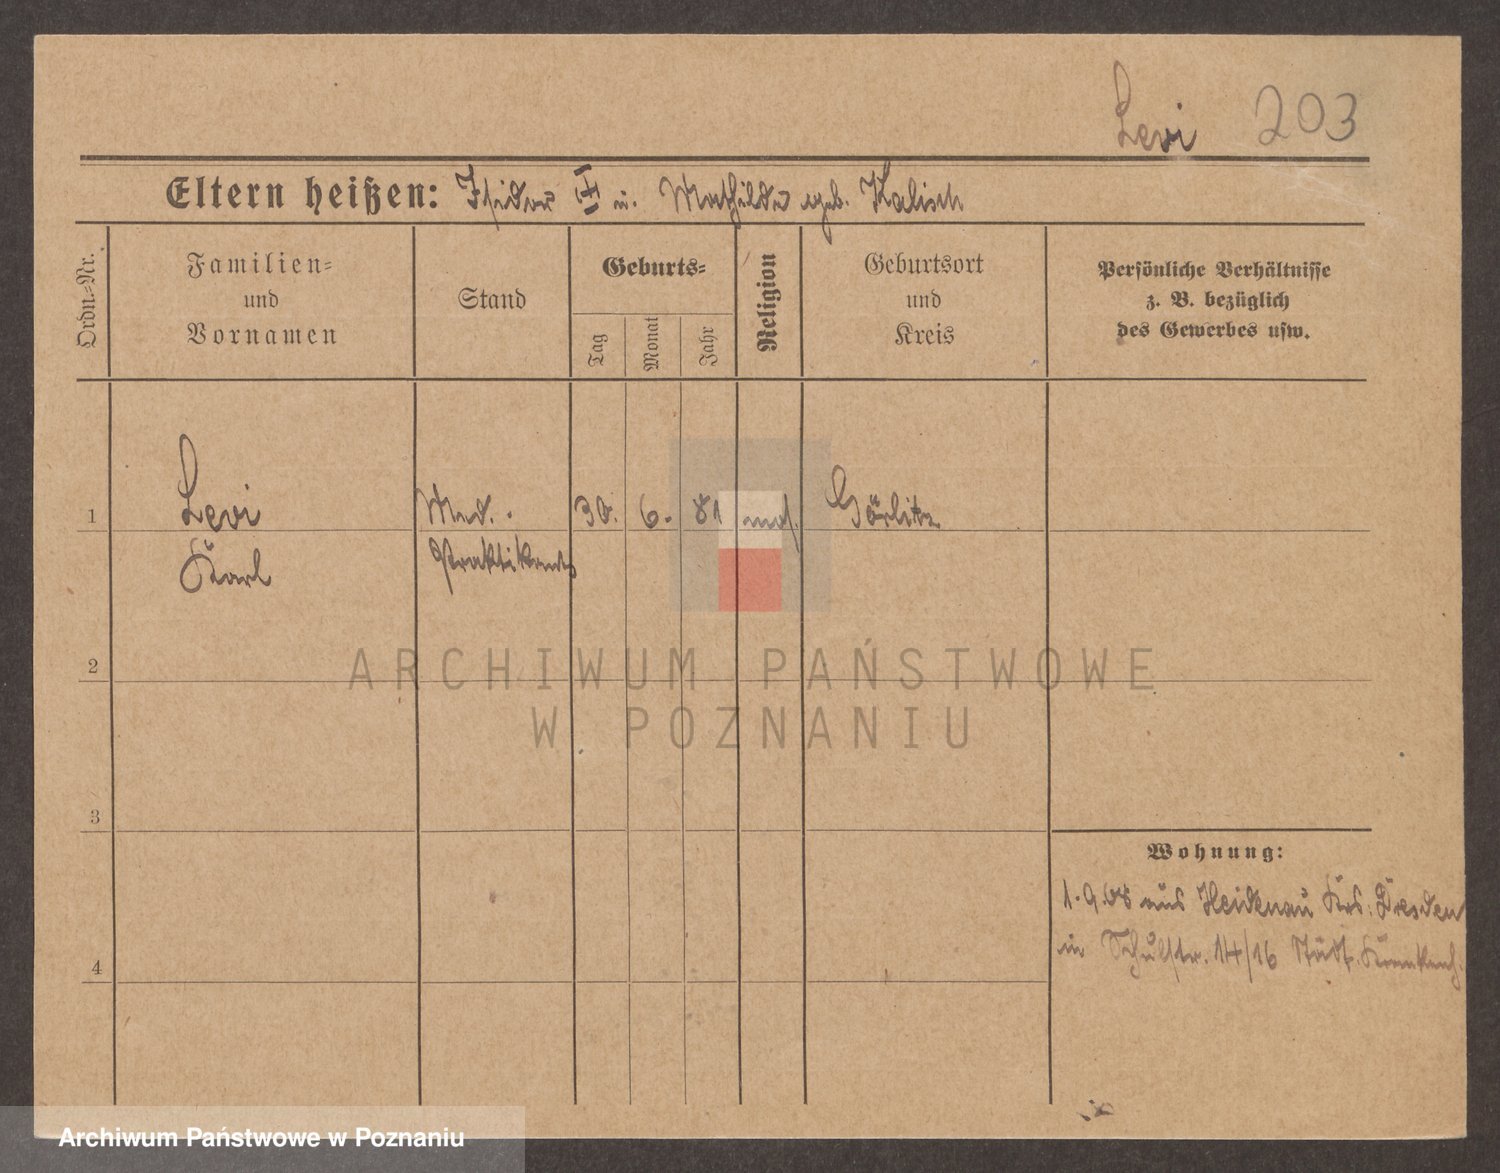 Levi 203
Eltern heißen: Isidor u. Mathilde geb. Kalisch
Ordn.-Nr.
Familien-
und
Vornamen
Stand
Geburts-
Tag
Monat
Jahr
Religion
Geburtsort
und
Kreis
Persönliche Verhältnisse
z. B. bezüglich
des Gewerbes usw.
1 Levi Med. 30. 6. 81 mos. Görlitz
Karl Praktikant
2
3
4
Wohnung:
1.9.08 aus Heidenau Krs. Dresden
in Schulstr. 14/16 Städt. Krankenh.
ARCHIWUM PAŃSTWOWE
W POZNANIU
Archiwum Państwowe w Poznaniu